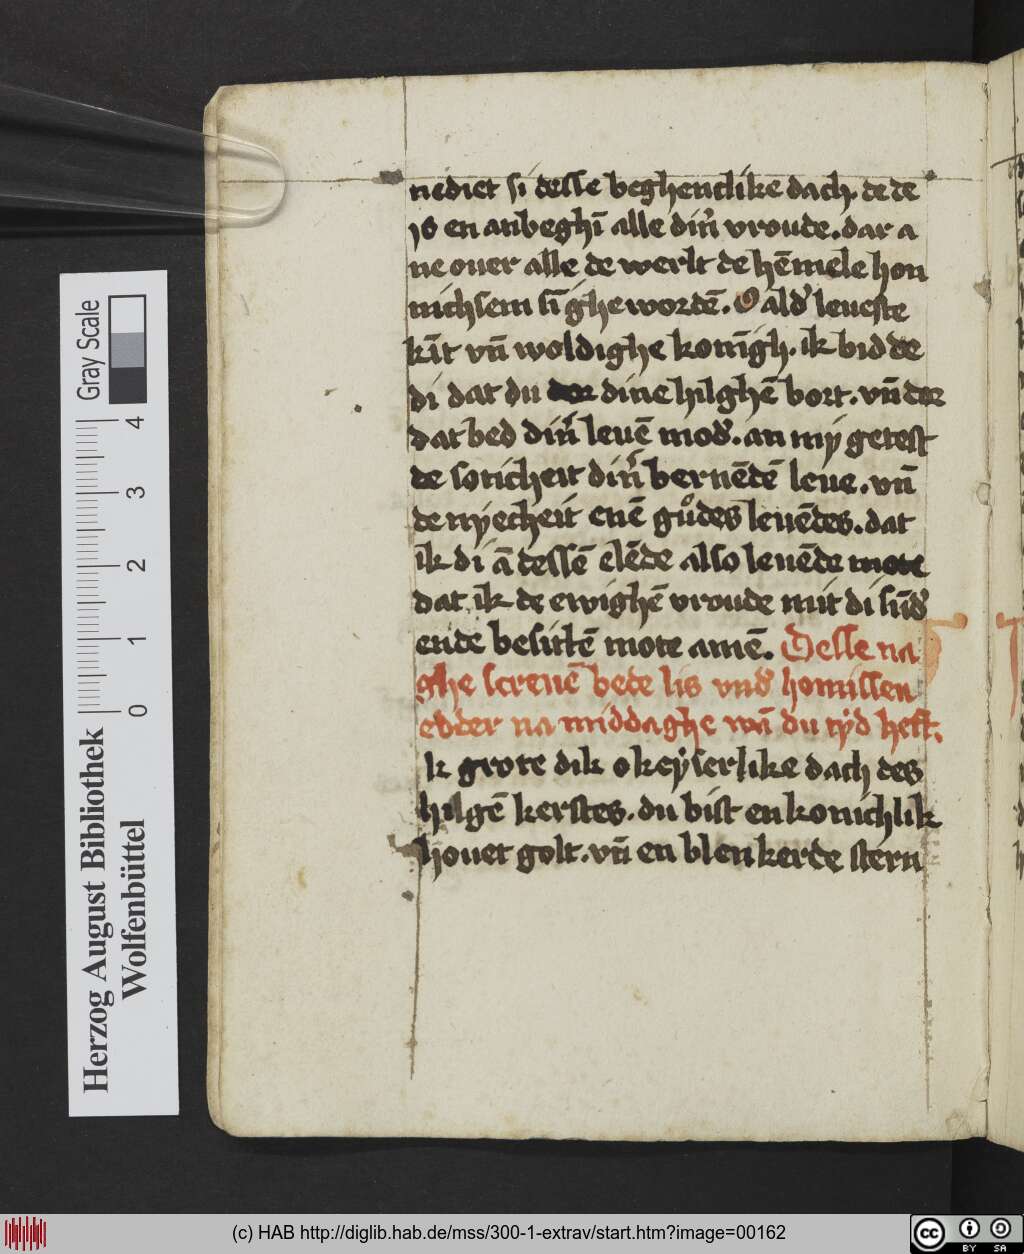 nediet si desse beghenclike dach. de de
is en anbeghī alle din̄ vroude. dar a
ne ouer alle de werlt de hēmele hon
nichsem sī ghe wordē. O ald' leueste
kīt vn̄ woldighe konīgh. ik bidde
di dat du dine hilghē bort. vn̄ dor
dat bed din̄ leuē mod'. an my getest
de soticheit din̄ bernēdē leue. vn̄
de nyecheit enē gůdes leuēdes. dat
ik di ā dessē elēde also leuēde mote
dat ik de ewighē vroude mit di sūd'
ende besittē mote amē. Desse na
ghe screuē bede lis vnd' homissen
edder na middaghe wā du tÿd hest.
k grote dik o keÿserlike dach des
hilgē kerstes. du bist en konichlik
houet golt. vn̄ en blenkerde stern
Gray Scale
0 1 2 3 4
Herzog August Bibliothek
Wolfenbüttel
(c) HAB http://diglib.hab.de/mss/300-1-extrav/start.htm?image=00162
cc BY SA